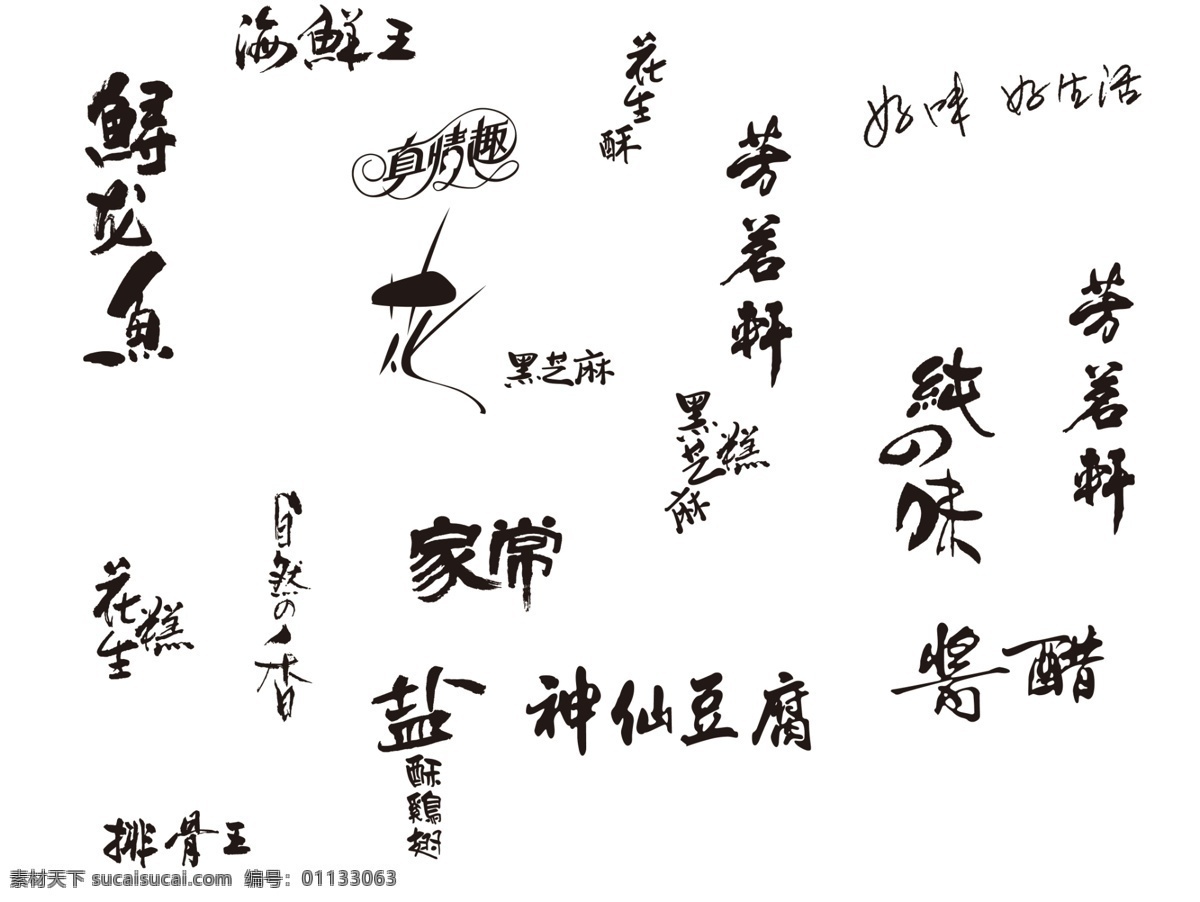 海鲜王
鲟龙鱼
真情趣
花
花生酥
芳茗軒
好味 好生活
黑芝麻
黑芝麻糕
芳茗軒
純の味
自然の香
家常
花生糕
盐酥鷄翅
神仙豆腐
醬醋
排骨王
素材天下 sucaisucai.com 编号：01133063